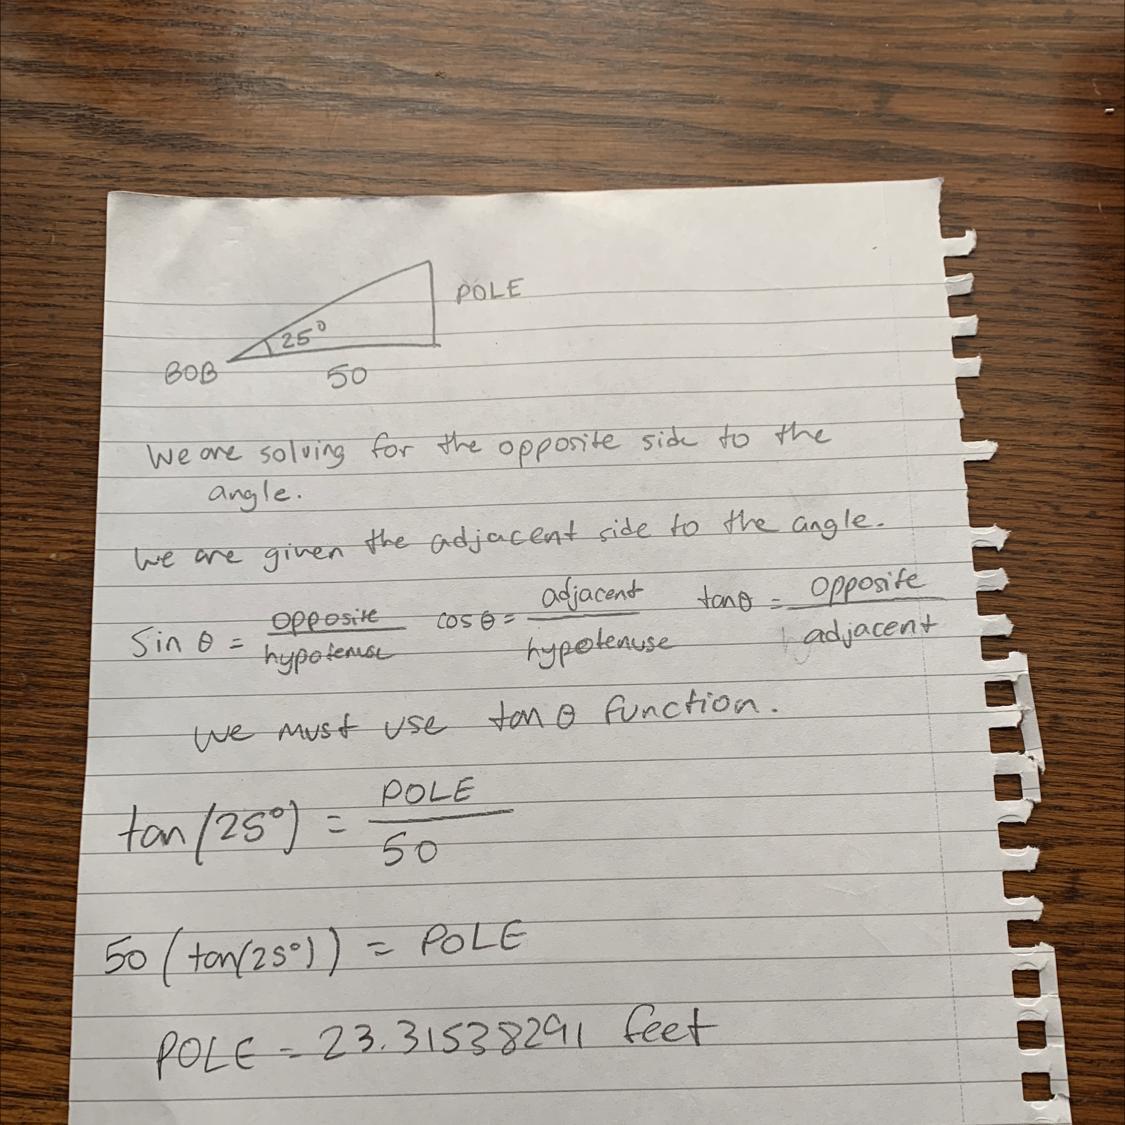 POLE
25°
BOB
50
We are solving for the opposite side to the
angle.
We are given the adjacent side to the angle.
Sin θ = opposite/hypotenuse cos θ = adjacent/hypotenuse tanθ = opposite/adjacent
We must use tan θ function.
tan(25°) = POLE/50
50 (tan(25°)) = POLE
POLE = 23.31538291 feet